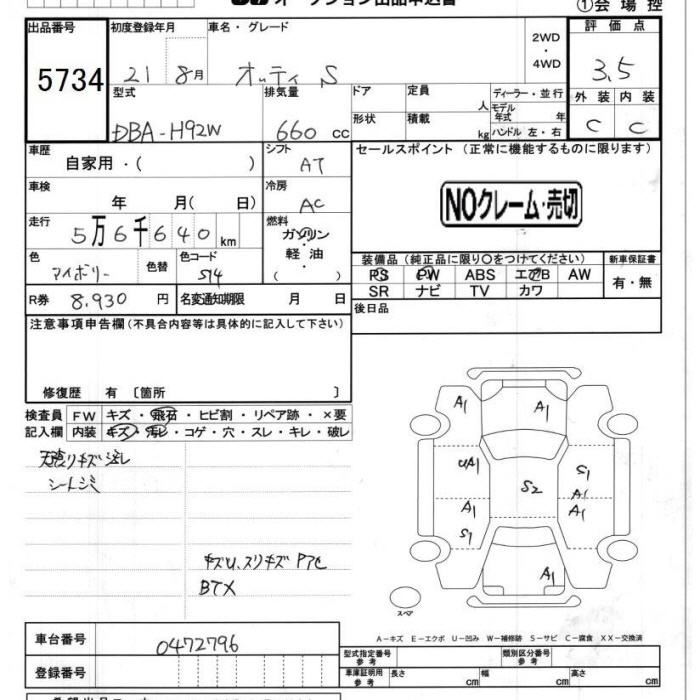 オークション出品申込書
①会場控
出品番号
5734
初度登録年月
21 8月
車名・グレード
オッティ S
2WD
・
4WD
評価点
3.5
外装 内装
C C
型式
DBA-H92W
排気量
660 cc
ドア
形状
定員
人
積載
kg
ディーラー・並行
モデル
年式 年
ハンドル 左・右
車歴
自家用・( )
シフト
AT
セールスポイント (正常に機能するものに限ります)
NOクレーム・売切
車検
年 月( 日)
冷房
AC
走行
5万6千640km
燃料
ガソリン
軽油
( )
色
アイボリー
色替
色コード
514
装備品 (純正品に限り○をつけてください)
新車保証書
PS PW ABS エアB AW
SR ナビ TV カワ
有・無
R券
8,930 円
名変通知期限 月 日
後日品
注意事項申告欄(不具合内容等は具体的に記入して下さい)
修復歴 有 〔箇所 〕
検査員
記入欄
FW キズ・飛石・ヒビ割・リペア跡・×要
内装 キズ・汚レ・コゲ・穴・スレ・キレ・破レ
シートシミ
キズU、スリキズ
BTX
A1 A1
UA1 S1
S2
A1 A1
S1
A1
スペア
A-キズ E-エクボ U-凹み W-補修跡 S-サビ C-腐食 XX-交換済
車台番号
0472796
登録番号
型式指定番号
参考
類別区分番号
参考
車庫証明用
参考
長さ cm
幅 cm
高さ cm